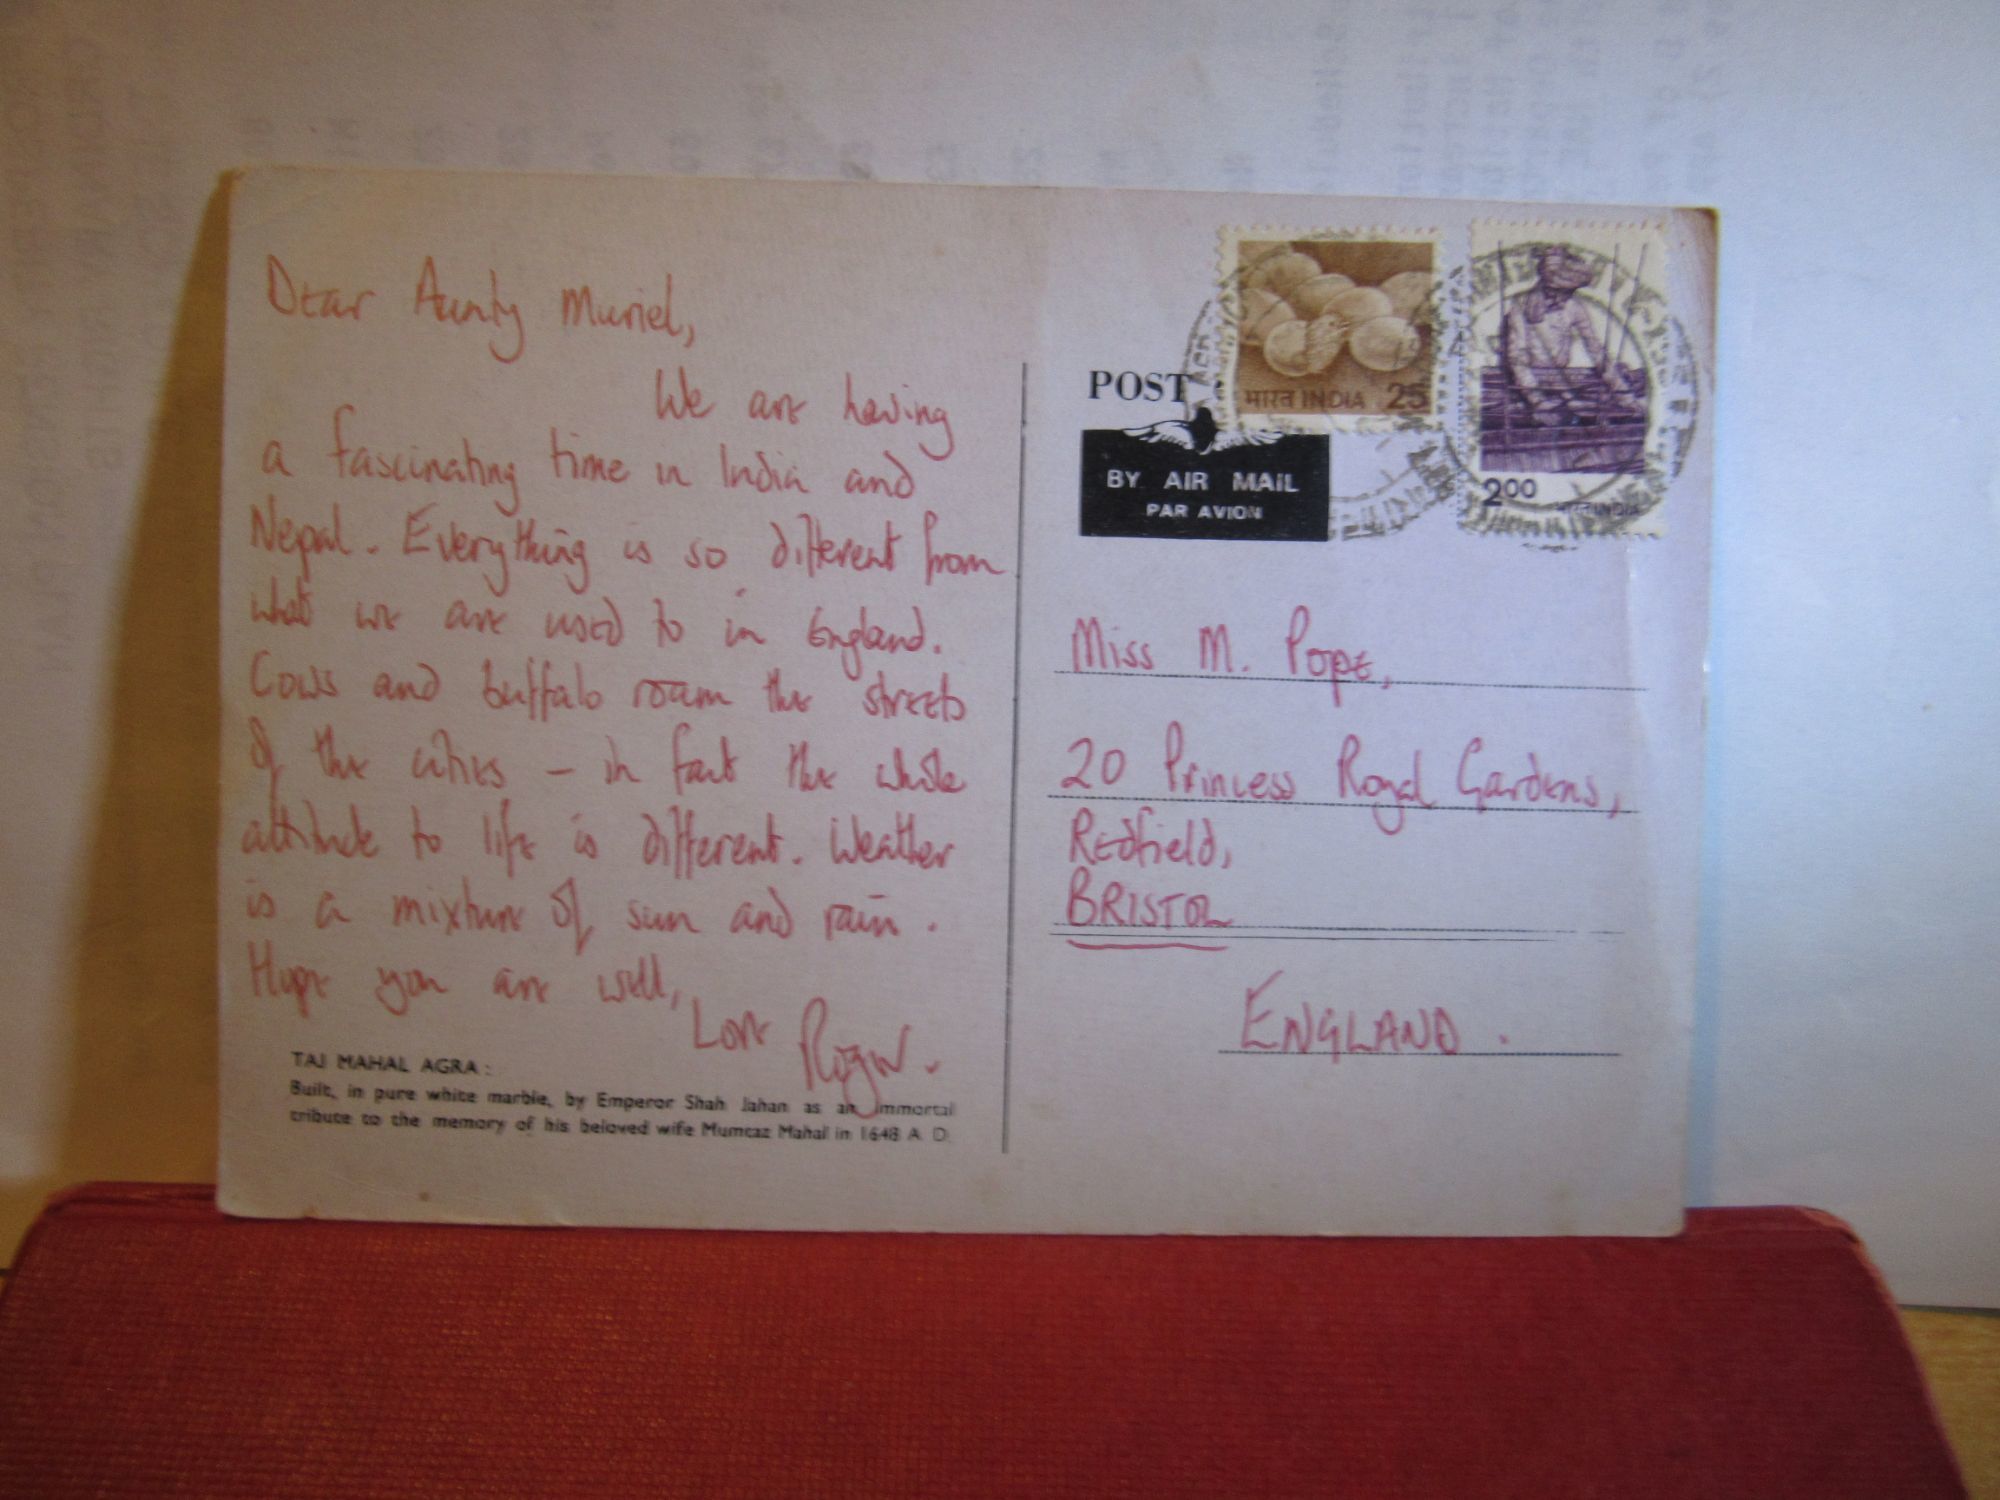 Dear Aunty Muriel,
We are having
a fascinating time in India and
Nepal. Everything is so different from
what we are used to in England.
Cows and buffalo roam the streets
of the cities – in fact the whole
attitude to life is different. Weather
is a mixture of sun and rain.
Hope you are well,
Love Roger.
TAJ MAHAL AGRA:
Built, in pure white marble, by Emperor Shah Jahan as an immortal
tribute to the memory of his beloved wife Mumtaz Mahal in 1648 A. D.
POST
BY AIR MAIL
PAR AVION
भारत INDIA 25
2.00
भारत INDIA
Miss M. Pope,
20 Princess Royal Gardens,
Redfield,
BRISTOL
ENGLAND.